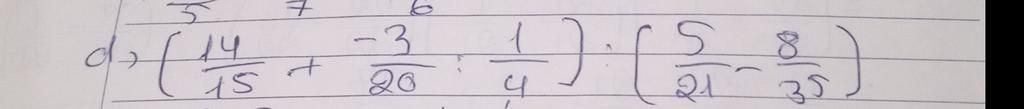 5 7 6
d, ( 14/15 + -3/20 : 1/4 ) : ( 5/21 - 8/35 )